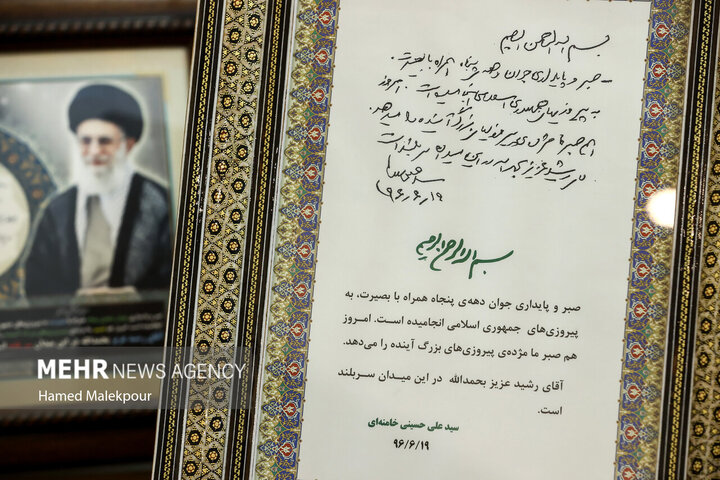 بسم الله الرحمن الرحیم
صبر و پایداری جوان دهه‌ی پنجاه، همراه با بصیرت،
به پیروزی‌های جمهوری اسلامی انجامیده است. امروز
هم صبر ما مژده‌ی پیروزی‌های بزرگ آینده را میدهد.
آقای رشید عزیز بحمدالله در این میدان سربلند است
۹۶/۶/۱۹
بسم الله الرحمن الرحیم
صبر و پایداری جوان دهه‌ی پنجاه همراه با بصیرت، به
پیروزی‌های جمهوری اسلامی انجامیده است. امروز
هم صبر ما مژده‌ی پیروزی‌های بزرگ آینده را می‌دهد.
آقای رشید عزیز بحمدالله در این میدان سربلند
است.
سید علی حسینی خامنه‌ای
۹۶/۶/۱۹
MEHR NEWS AGENCY
Hamed Malekpour